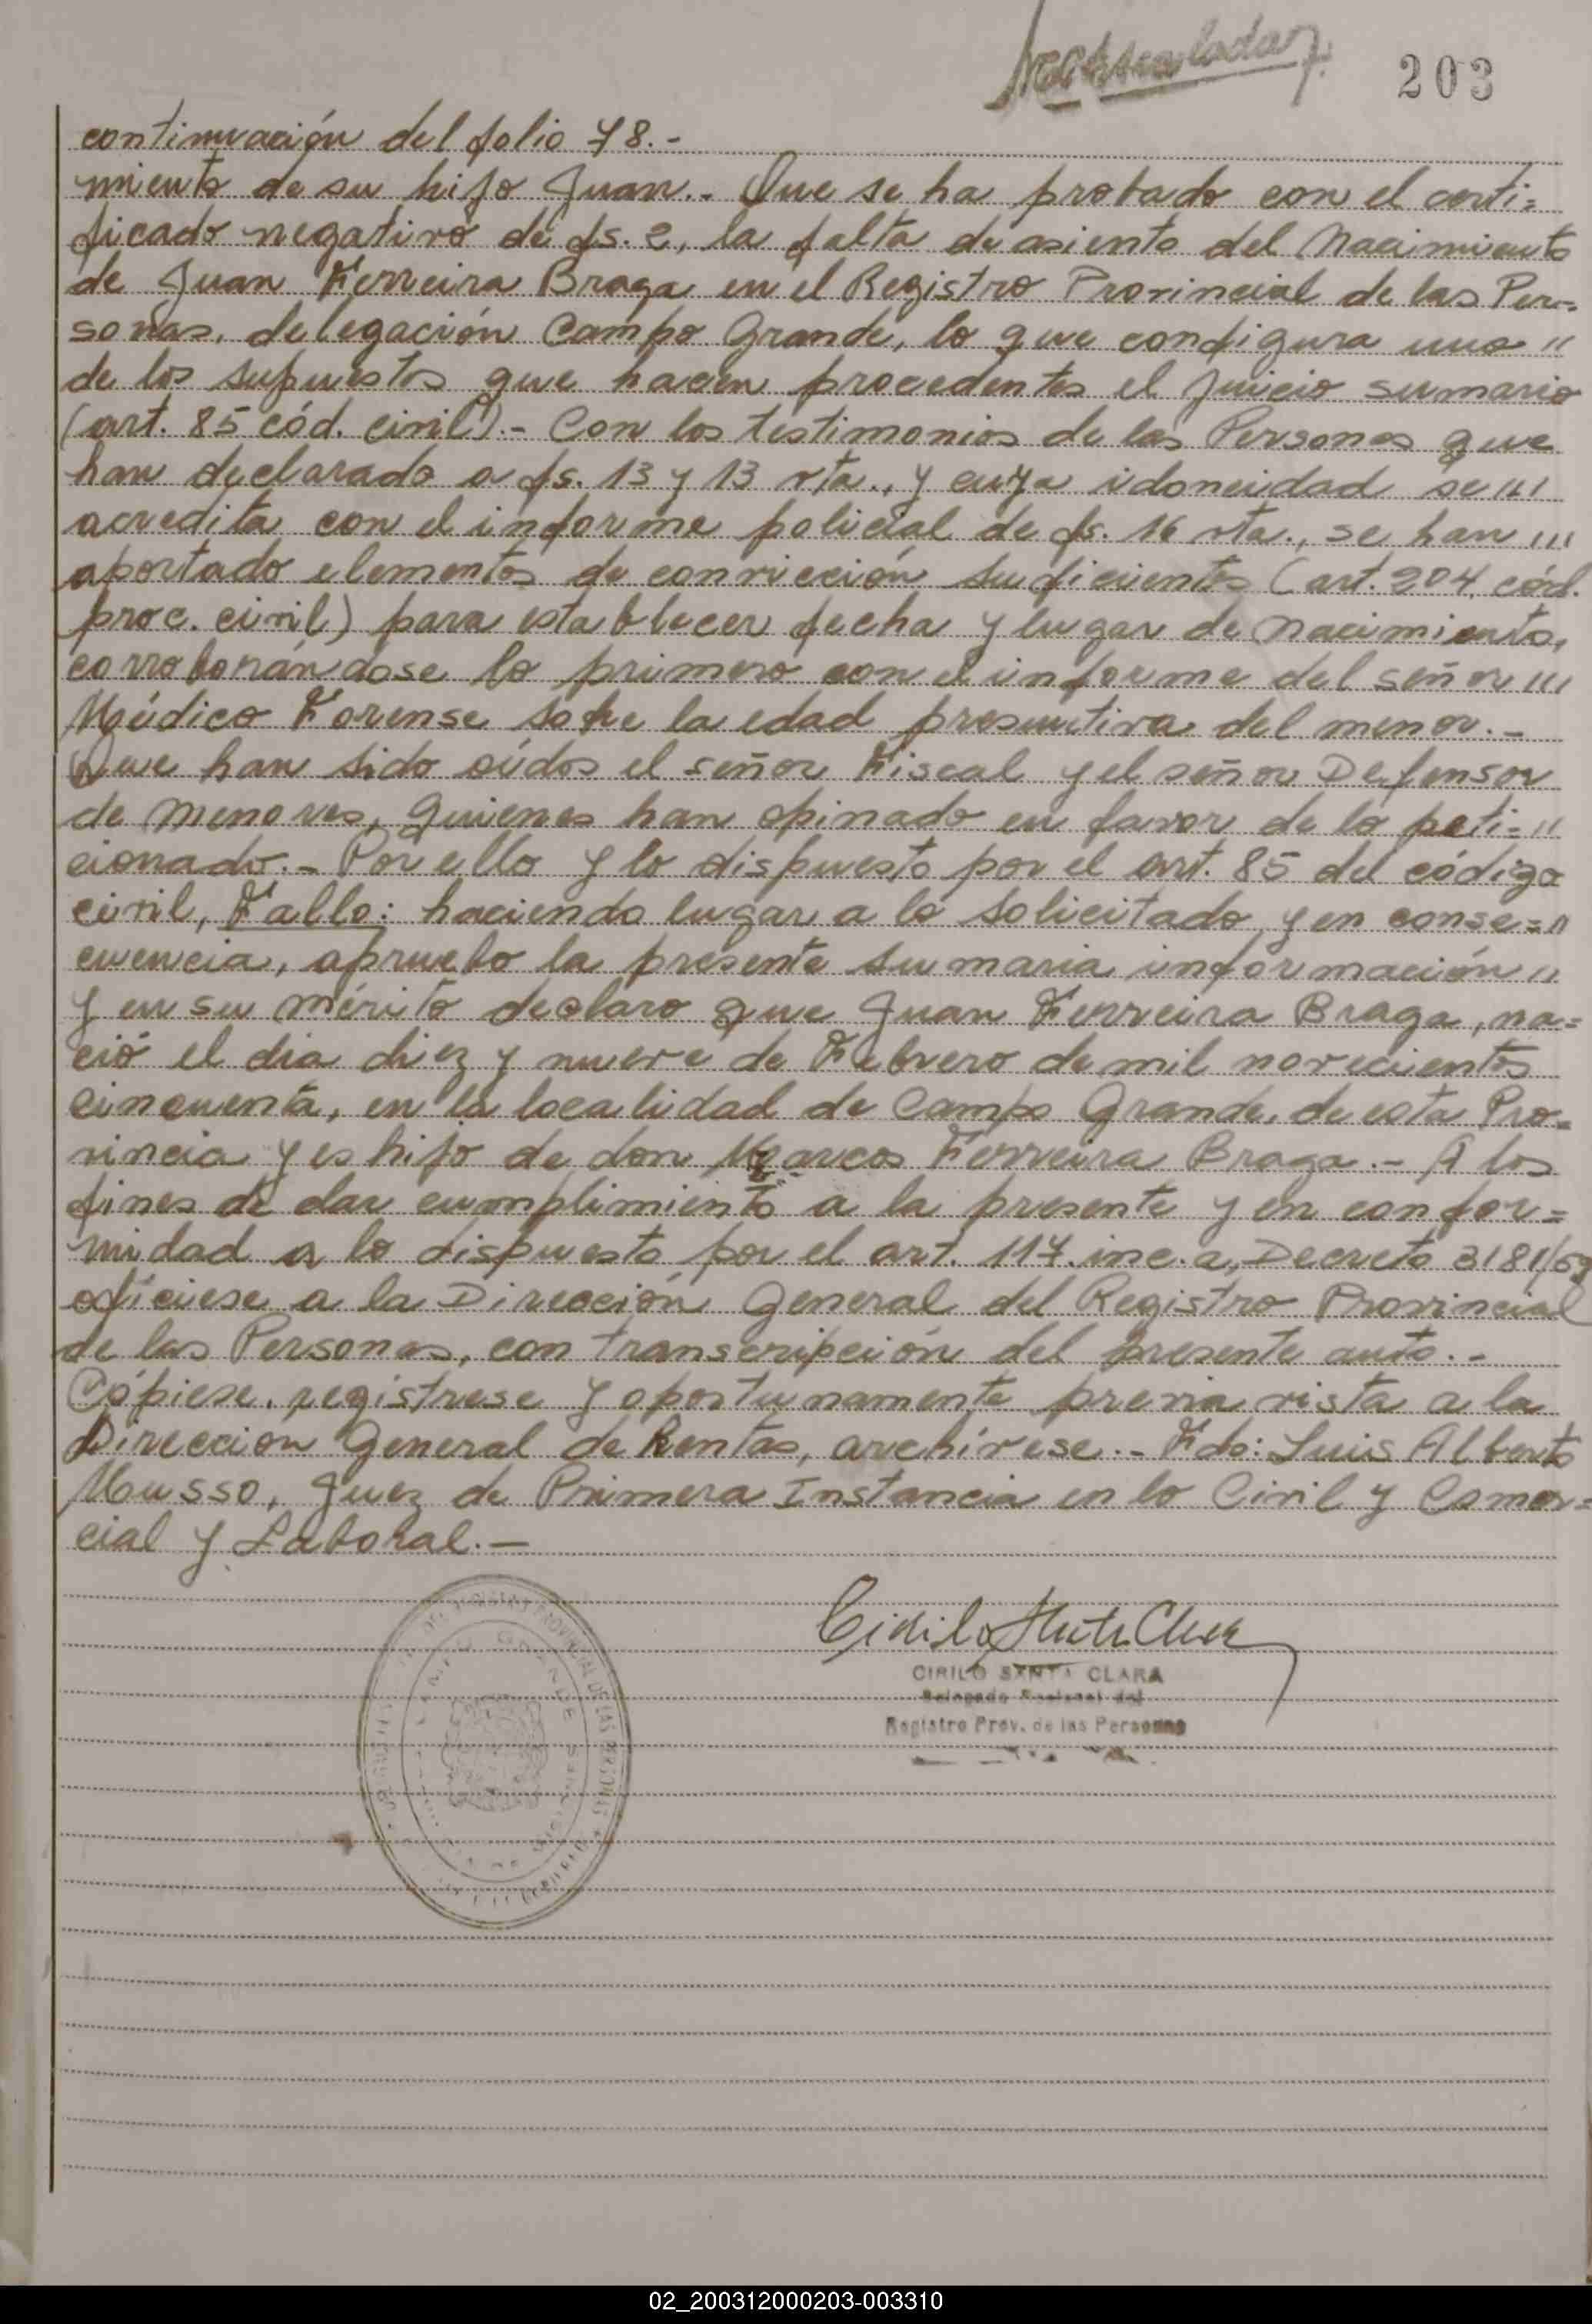 203
continuación del folio 78.-
miento de su hijo Juan.- Que se ha probado con el certi=
ficado negativo de fs. 2, la falta de asiento del Nacimiento
de Juan Ferreira Braga en el Registro Provincial de las Per=
sonas, delegación Campo Grande, lo que configura uno "
de los supuestos que hacen procedentes el juicio sumario
(art. 85 cód. civil).- Con los testimonios de las Personas que
han declarado a fs. 13 y 13 vta., y cuya idoneidad se """
acredita con el informe policial de fs. 16 vta., se han """
aportado elementos de convicción suficientes (art. 204, cód.
proc. civil) para establecer fecha y lugar de Nacimiento,
corroborándose lo primero con el informe del señor """
Médico Forense sobre la edad presuntiva del menor.-
Que han sido oídos el señor Fiscal y el señor Defensor
de Menores, quienes han opinado en favor de lo peti="
cionado.- Por ello y lo dispuesto por el art. 85 del código
civil, Fallo: haciendo lugar a lo solicitado, y en conse="
cuencia, apruebo la presente sumaria información "
y en su mérito declaro que Juan Ferreira Braga, na=
ció el dia diez y nueve de Febrero de mil novecientos
cincuenta, en la localidad de Campo Grande, de esta Pro=
vincia y es hijo de don Marcos Ferreira Braga.- A los
fines de dar cumplimiento a la presente y en confor=
midad a lo dispuesto por el art. 117. inc. a, Decreto 3181/69
ofíciese a la Dirección General del Registro Provincial
de las Personas, con transcripción del presente auto.-
Cópiese, regístrese y oportunamente previa vista a la
Direccion General de Rentas, archívese.- Fdo: Luis Alberto
Musso, Juez de Primera Instancia en lo Civil y Comer=
cial y Laboral.-
Cirilo Santa Clara
CIRILO SANTA CLARA
Delegado Regional del
Registro Prov. de las Personas
REGISTRO PROVINCIAL DE LAS PERSONAS
CAMPO GRANDE
02_200312000203-003310